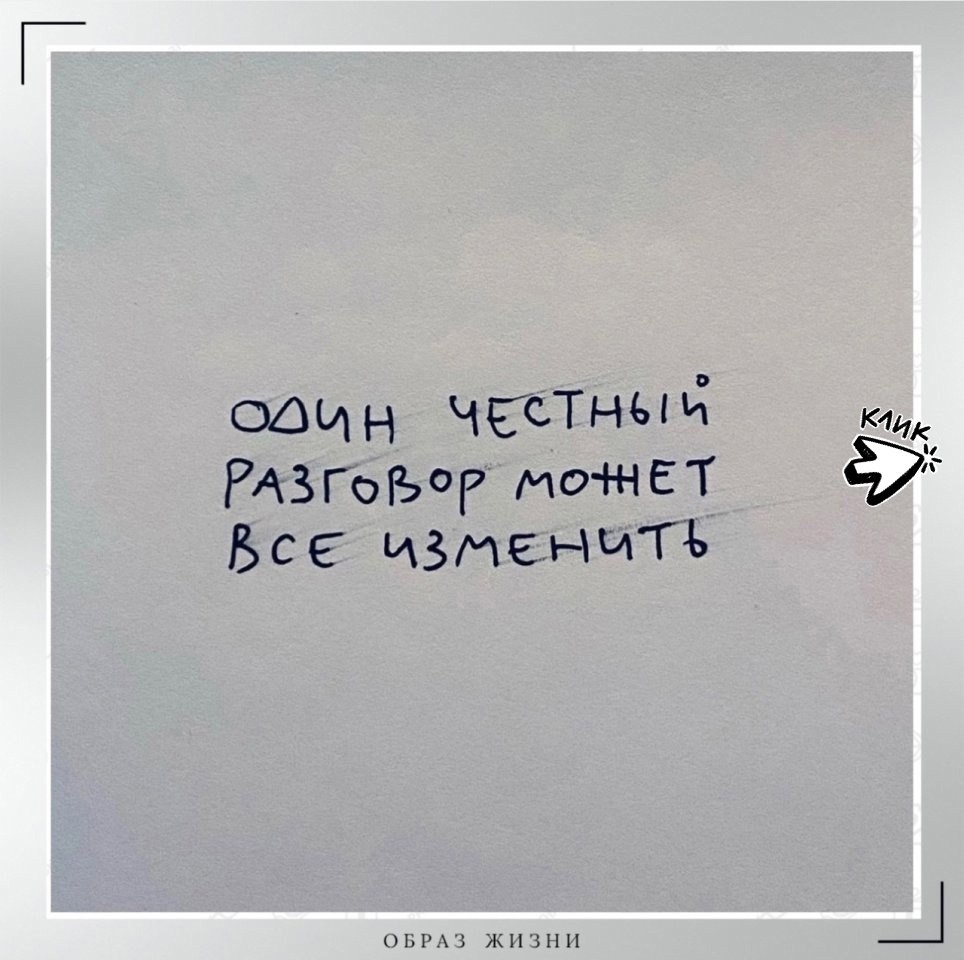 ОДИН ЧЕСТНЫЙ
РАЗГОВОР МОЖЕТ
ВСЕ ИЗМЕНИТЬ
КЛИК
ОБРАЗ ЖИЗНИ